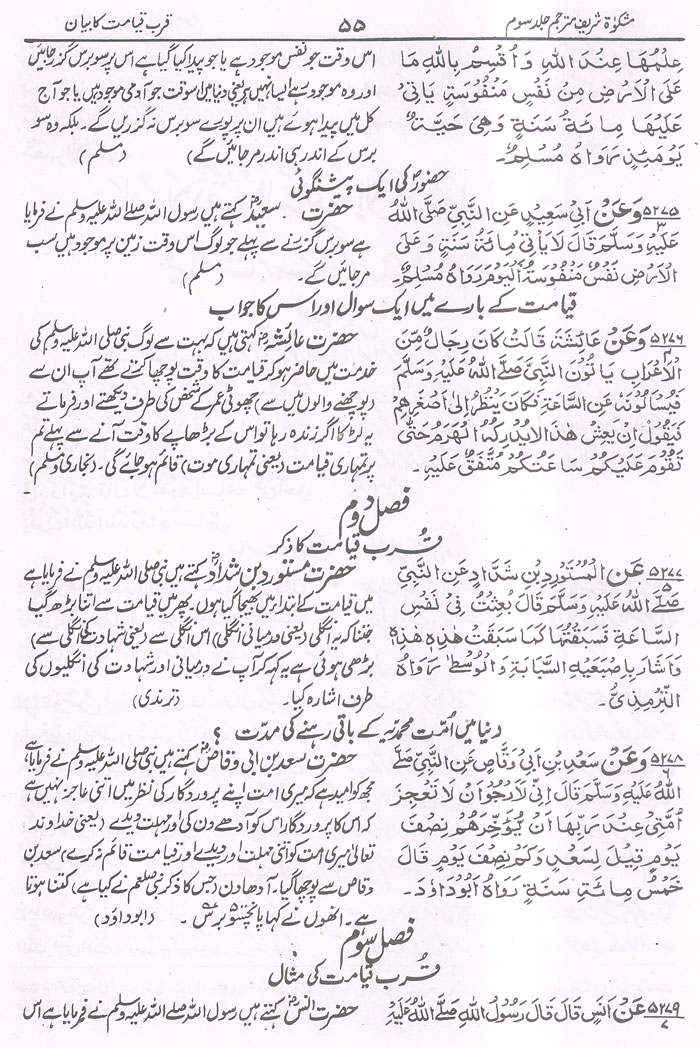 مشکوٰۃ شریف مترجم جلد سوم ۵۵ قرب قیامت کا بیان
عِلْمُهَا عِنْدَ اللهِ وَاُقْسِمُ بِاللهِ مَا
عَلَى الْاَرْضِ مِنْ نَفْسٍ مَنْفُوْسَةٍ يَاْتِيْ
عَلَيْهَا مِائَةُ سَنَةٍ وَهِيَ حَيَّةٌ
يَوْمَئِذٍ رَوَاهُ مُسْلِمٌ۔
اس وقت جو نفس موجود ہے یا جو پیدا کیا گیا ہے اس پر سو برس گزر جائیں
اور وہ موجود رہے ایسا نہیں ہے یعنی دنیا میں اسوقت جو آدمی موجود ہیں یا جو آج
کل میں پیدا ہوئے ہیں ان پر پورے سو برس نہ گزریں گے۔ بلکہ وہ سو
برس کے اندر ہی اندر مر جائیں گے) (مسلم)
حضورؐ کی ایک پیشنگوئی
۵۲۷۵ ۳ وَعَنْ اَبِيْ سَعِيْدٍ عَنِ النَّبِيِّ صَلَّى اللهُ
عَلَيْهِ وَسَلَّمَ قَالَ لَا يَاْتِيْ مِائَةُ سَنَةٍ وَعَلَى
الْاَرْضِ نَفْسٌ مَنْفُوْسَةٌ اَلْيَوْمَ رَوَاهُ مُسْلِمٌ۔
حضرت ۔ سعیدؓ کہتے ہیں رسول اللہ صلے اللہ علیہ وسلم نے فرمایا
ہے سو برس گزرنے سے پہلے جو لوگ اس وقت زمین پر موجود ہیں سب
مر جائیں گے۔ (مسلم)
قیامت کے بارے میں ایک سوال اور اس کا جواب
۵۲۷۶ ۴ وَعَنْ عَائِشَةَ قَالَتْ كَانَ رِجَالٌ مِّنَ
الْاَعْرَابِ يَاْتُوْنَ النَّبِيَّ صَلَّے اللهُ عَلَيْهِ وَسَلَّمَ
فَيَسْاَلُوْنَهٗ عَنِ السَّاعَةِ فَكَانَ يَنْظُرُ اِلٰى اَصْغَرِهِمْ
فَيَقُوْلُ اِنْ يَعِشْ هٰذَا لَا يُدْرِكُهُ الْهَرَمُ حَتّٰى
تَقُوْمَ عَلَيْكُمْ سَاعَتُكُمْ مُتَّفَقٌ عَلَيْهِ۔
حضرت عائشہؓ کہتی ہیں کہ بہت سے لوگ نبی صلی اللہ علیہ وسلم کی
خدمت میں حاضر ہو کر قیامت کا وقت پوچھا کرتے تھے آپ ان سے
(پوچھنے والوں میں سے) چھوٹی عمر کے شخص کی طرف دیکھتے اور فرماتے
یہ لڑکا اگر زندہ رہا تو اس کے بڑھاپے کا وقت آنے سے پہلے تم
پر تمہاری قیامت (یعنی تمہاری موت) قائم ہو جائے گی۔ (بخاری و مسلم)
فصل دوم
قُرب قیامت کا ذکر
۵۲۷۷ ۵ عَنِ الْمُسْتَوْرِدِ بْنِ شَدَّادٍ عَنِ النَّبِيِّ
صَلَّے اللهُ عَلَيْهِ وَسَلَّمَ قَالَ بُعِثْتُ فِيْ نَفْسِ
السَّاعَةِ فَسَبَقْتُهَا كَمَا سَبَقَتْ هٰذِهٖ هٰذِهٖ
وَاَشَارَ بِاِصْبَعَيْهِ السَّبَّابَةِ وَالْوُسْطٰى رَوَاهُ
التِّرْمِذِيُّ۔
حضرت مستورد بن شدادؓ کہتے ہیں نبی صلی اللہ علیہ وسلم نے فرمایا ہے
میں قیامت کے ابتدا میں بھیجا گیا ہوں۔ پھر میں قیامت سے اتنا بڑھ گیا
جتنا کہ یہ انگلی (یعنی درمیانی انگلی) اس انگلی سے (یعنی شہادت کی انگلی سے)
بڑھی ہوئی ہے یہ کہہ کر آپ نے درمیانی اور شہادت کی انگلیوں کی
طرف اشارہ کیا۔ (ترمذی)
دنیا میں اُمّت محمدیہ کے باقی رہنے کی مدّت ؟
۵۲۷۸ ۶ وَعَنْ سَعْدِ بْنِ اَبِيْ وَقَّاصٍ عَنِ النَّبِيِّ صَلَّے
اللهُ عَلَيْهِ وَسَلَّمَ قَالَ اِنِّيْ لَاَرْجُوْ اَنْ لَا تَعْجِزَ
اُمَّتِيْ عِنْدَ رَبِّهَا اَنْ يُؤَخِّرَهُمْ نِصْفَ
يَوْمٍ قِيْلَ لِسَعْدٍ وَكَمْ نِصْفُ يَوْمٍ قَالَ
خَمْسُ مِائَةِ سَنَةٍ رَوَاهُ اَبُوْدَاوٗدَ۔
حضرت سعد بن ابی وقاصؓ کہتے ہیں نبی صلی اللہ علیہ وسلم نے فرمایا ہے
مجھ کو امید ہے کہ میری امت اپنے پروردگار کی نظر میں اتنی عاجز نہیں ہے
کہ اس کا پروردگار اس کو آدھے دن کی اور مہلت دیدے (یعنی خداوند
تعالیٰ میری امت کو اتنی مہلت اور دیدے اور قیامت قائم نہ کرے) سعد بن
وقاص سے پوچھا گیا۔ آدھا دن (جس کا ذکر نبی صلعم نے کیا ہے) کتنا ہوتا
ہے۔ انھوں نے کہا پانچسو برس ۔ (ابوداؤد)
فصل سوم
قُرب قیامت کی مثال
۵۲۷۹ ۷ عَنْ اَنَسٍ قَالَ قَالَ رَسُوْلُ اللهِ صَلَّے اللهُ عَلَيْهِ
حضرت انسؓ کہتے ہیں رسول اللہ صلے اللہ علیہ وسلم نے فرمایا ہے اس